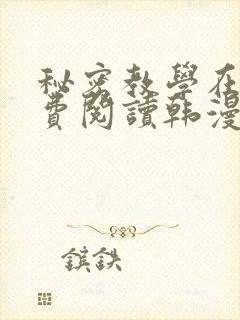 秘密教學在
費閱讀韩漫
鎵鉄